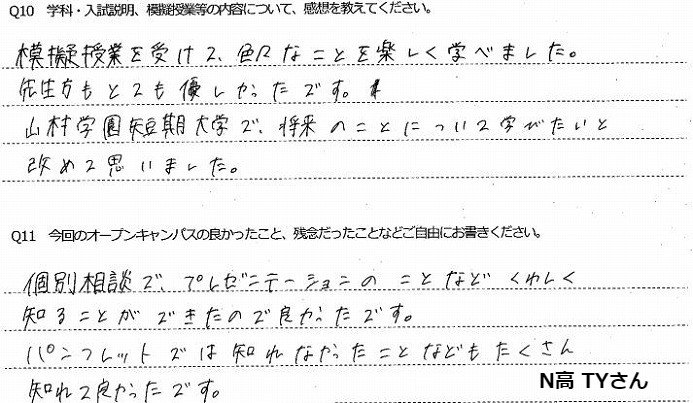 Q10 学科・入試説明、模擬授業等の内容について、感想を教えてください。
模擬授業を受けて、色々なことを楽しく学べました。
先生方もとても優しかったです。
山村学園短期大学で、将来のことについて学びたいと
改めて思いました。
Q11 今回のオープンキャンパスの良かったこと、残念だったことなどご自由にお書きください。
個別相談で、プレゼンテーションの ことなど くわしく
知ることができたので良かったです。
パンフレットでは知れなかったことなどもたくさん
知れて良かったです。
N高 TYさん